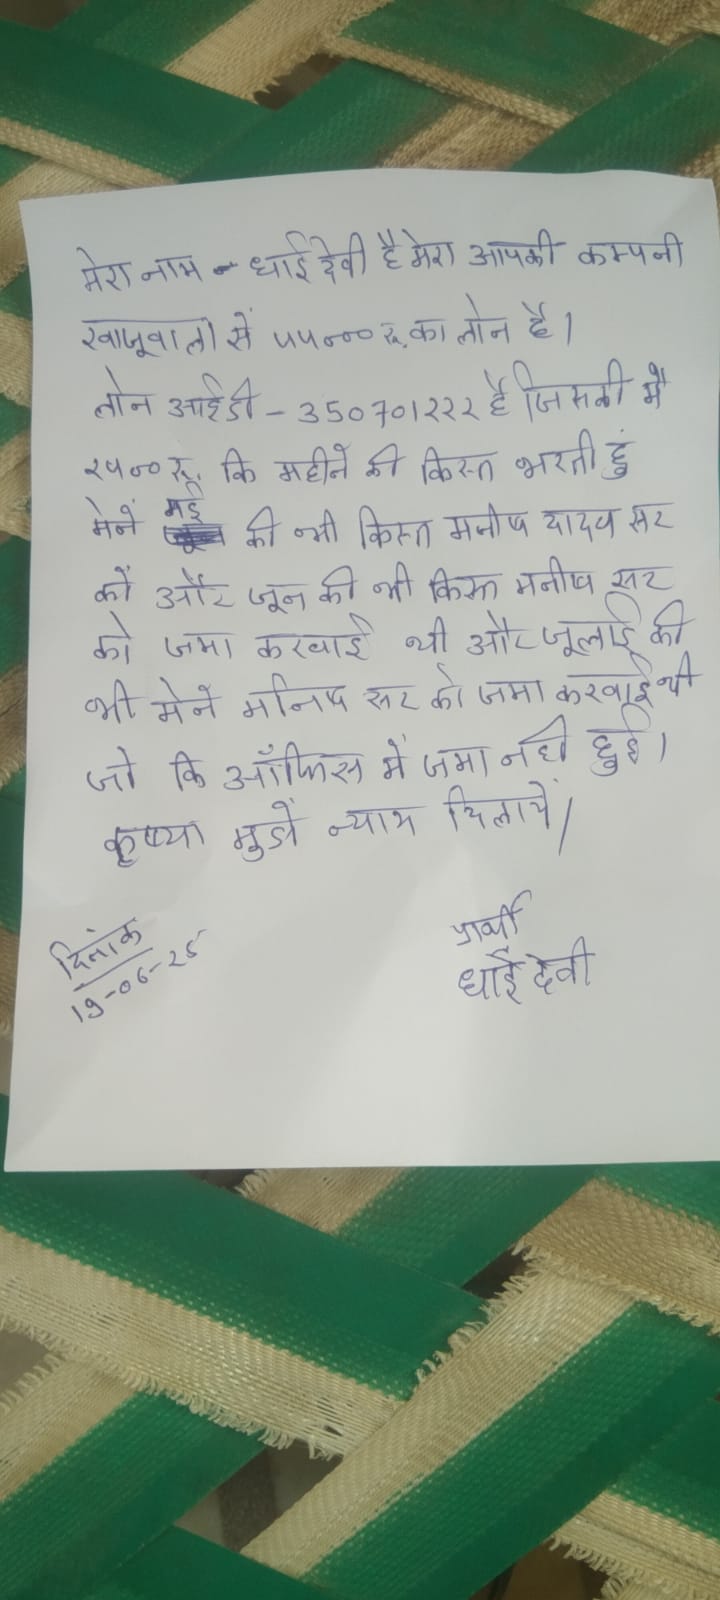 मेरा नाम - धाई देवी है मेरा आपकी कम्पनी
खाजूवाला से ५५००० रू. का लोन है।
लोन आईडी - 350701222 है जिसकी में
२५०० रू. कि महीने की किस्त भरती हुं
मेनें मई की भी किस्त मनीष यादव सर
कों और जून की भी किस्त मनीष सर
को जमा करवाई थी और जूलाई की
भी मेने मनिष सर को जमा करवाई थी
जो कि ऑफिस में जमा नही हुई।
कृष्या मुझे न्याय दिलाये।
दिनांक
19-06-25
प्रार्थी
धाई देवी